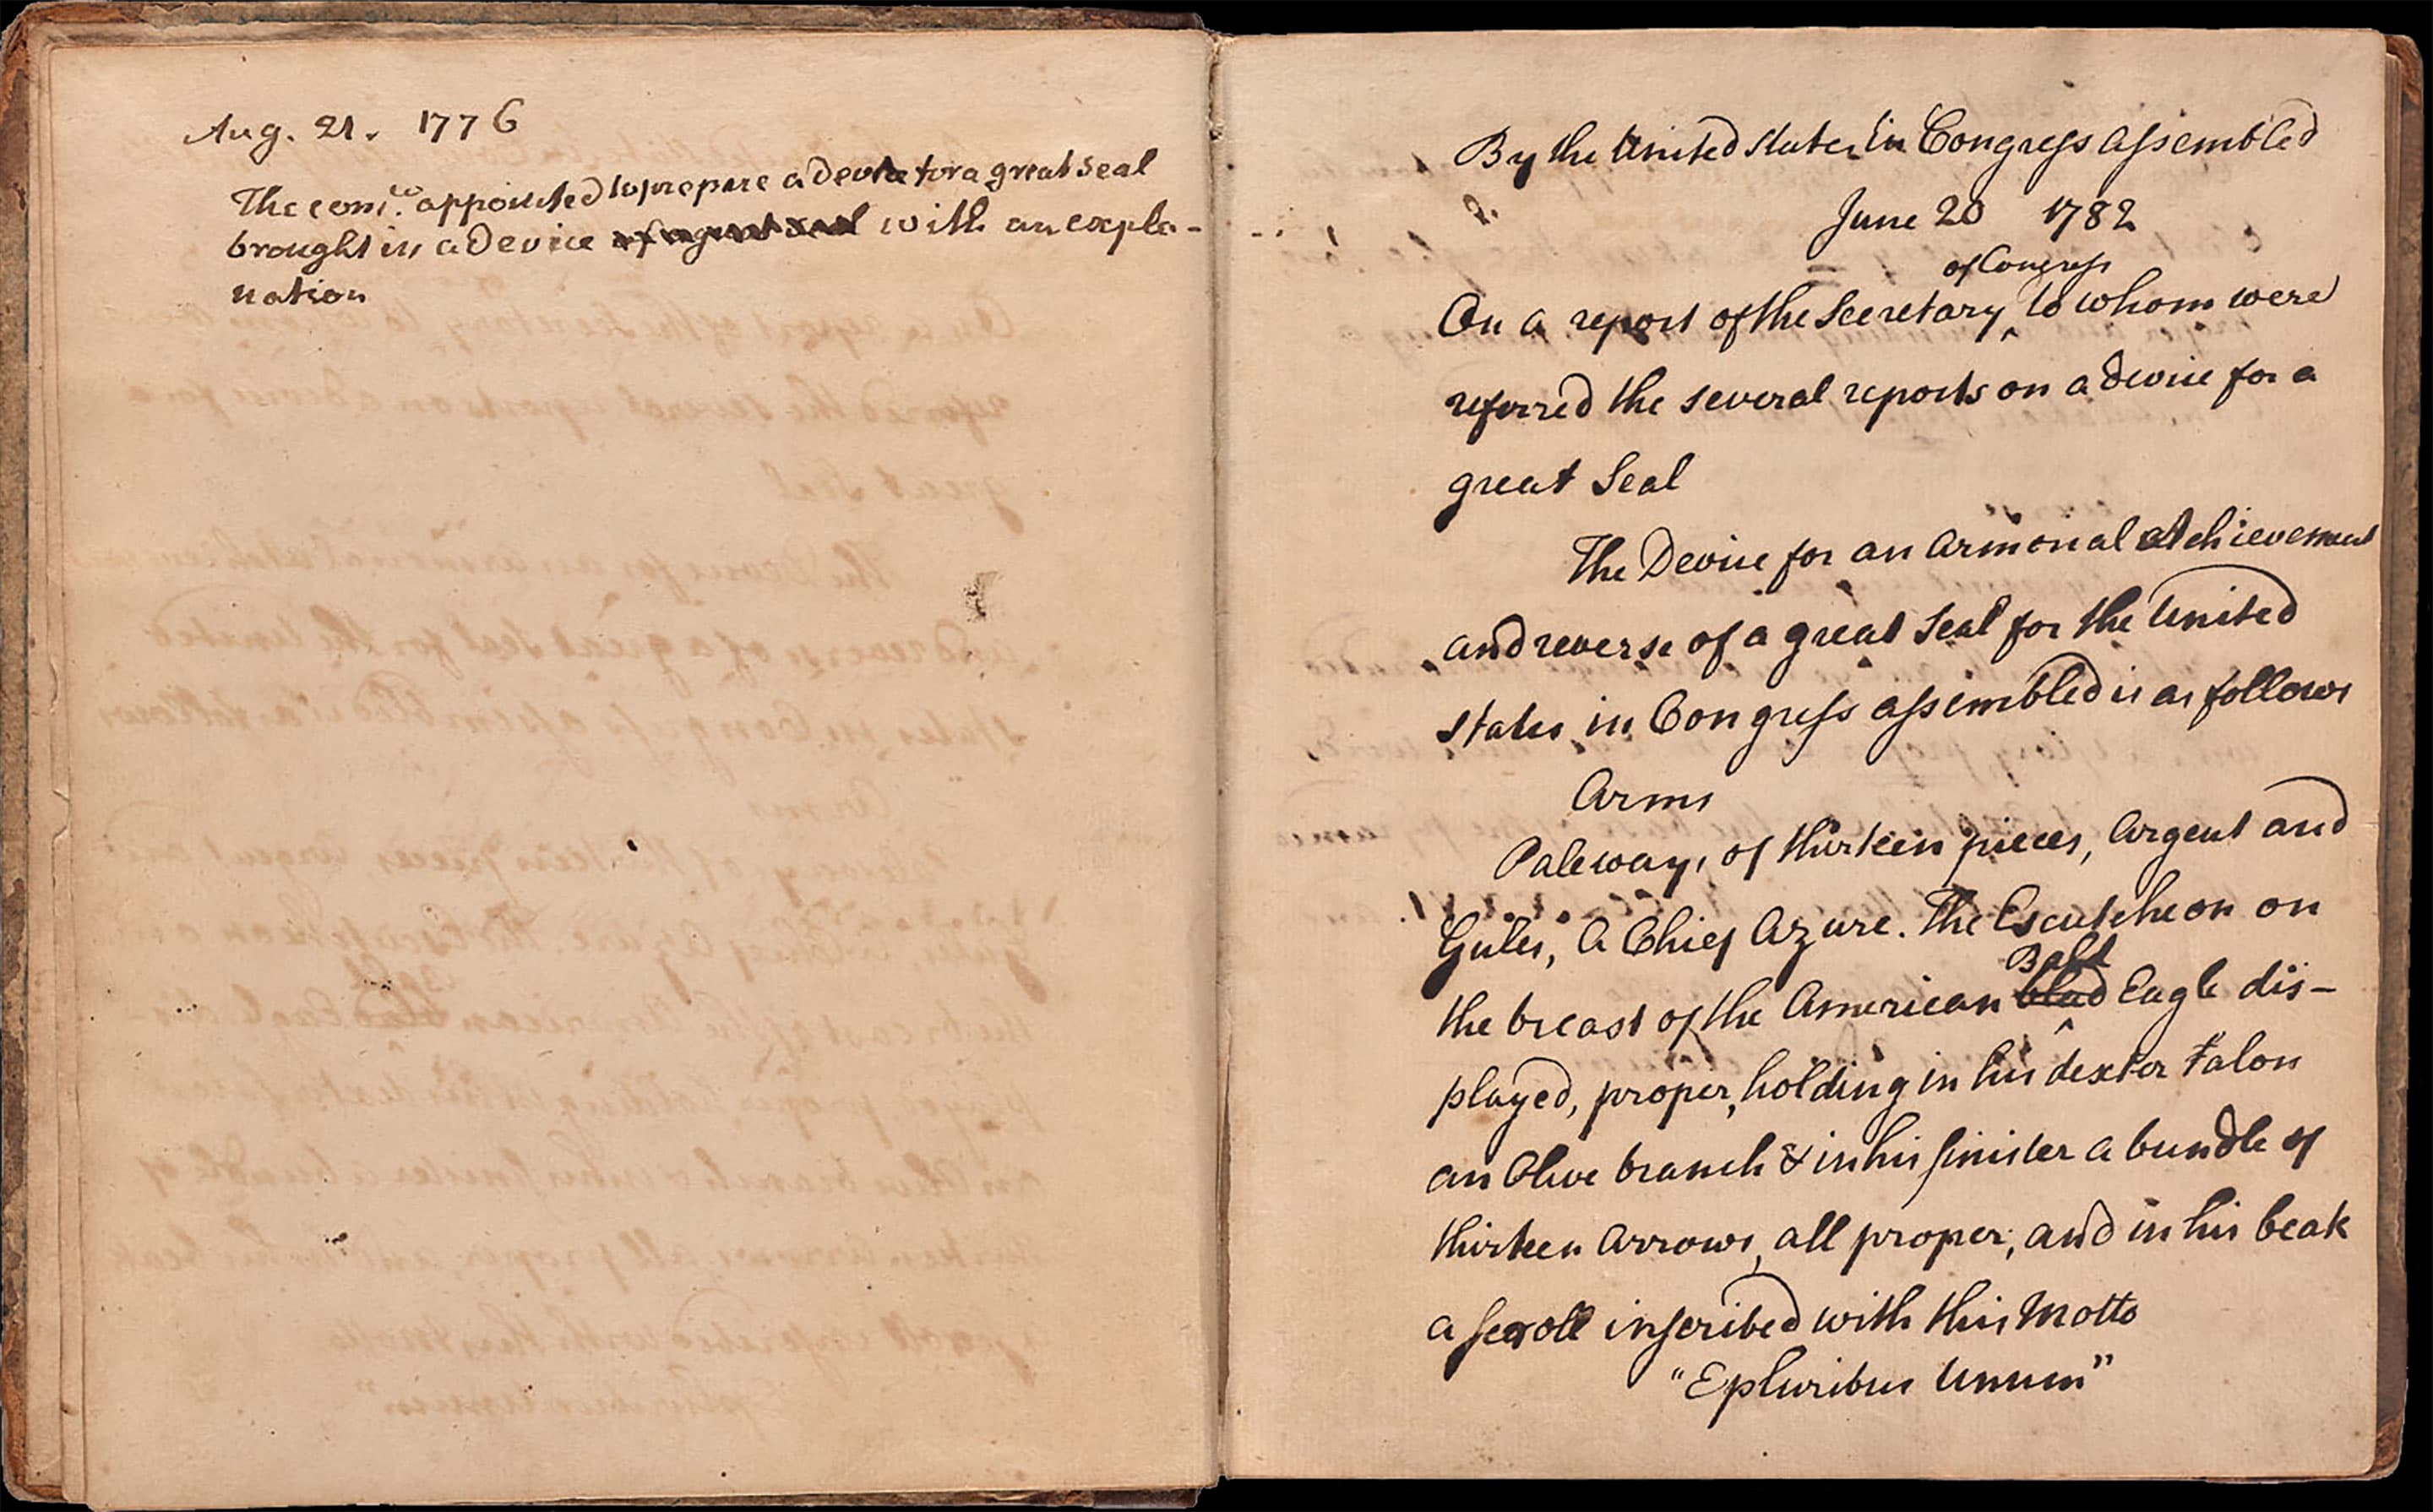 Aug. 21. 1776
The com.ee appointed to prepare a device for a great seal
brought in a device of a great seal with an expla-
nation
By the United States in Congress assembled
June 20 1782
of Congress
On a report of the Secretary ‸ to whom were
referred the several reports on a device for a
great Seal
The Device for an Armorial Atchievement
and reverse of a great Seal for the United
States in Congress assembled is as follows
Arms
Paleways of thirteen pieces, Argent and
Gules, A Chief Azure. The Escutcheon on
Bald
the breast of the American blad ‸ Eagle dis-
played, proper, holding in his dexter talon
an Olive branch & in his sinister a bundle of
thirteen Arrows, all proper, and in his beak
a scroll inscribed with this Motto
"E pluribus Unum"